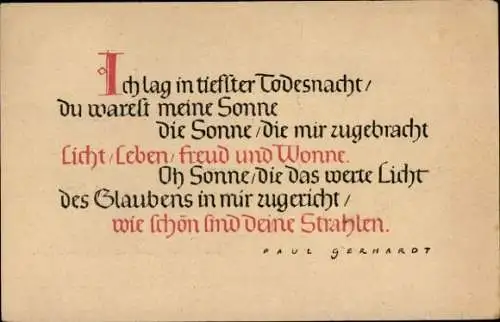 Ich lag in tiefster Todesnacht/
du warest meine Sonne
die Sonne/die mir zugebracht
Licht/Leben/Freud und Wonne.
Oh Sonne/die das werte Licht
des Glaubens in mir zugericht/
wie schön sind deine Strahlen.
PAUL GERHARDT